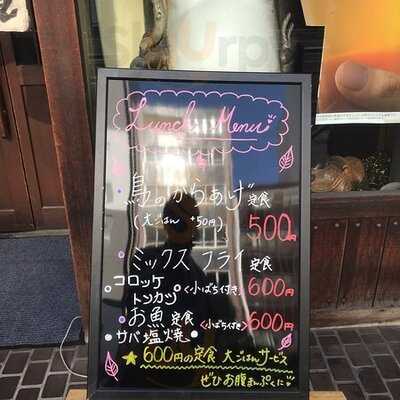 Lunch Menu
鳥のからあげ定食
(大ごはん +50円) 500円
ミックスフライ定食
コロッケ
トンカツ <小ばち付き> 600円
お魚定食 <小ばち付き> 600円
サバ塩焼
★600円の定食 大ごはんサービス
ぜひお腹まんぷくに